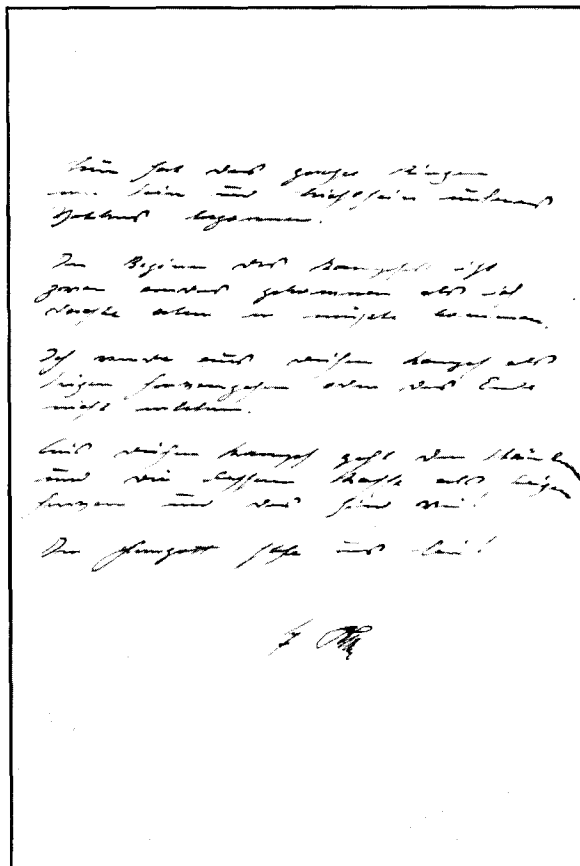 Nun hat das große Ringen
um Sein und Nichtsein unseres
Volkes begonnen.
Der Beginn des Kampfes ist
zwar anders gekommen als ich
dachte aber er mußte kommen.
Ich werde aus diesem Kampf als
Sieger hervorgehen oder das Ende
nicht erleben.
Aus diesem Kampf geht der
und die Rasse als Sieger
hervor und das sind wir!
Der Herrgott stehe uns bei!